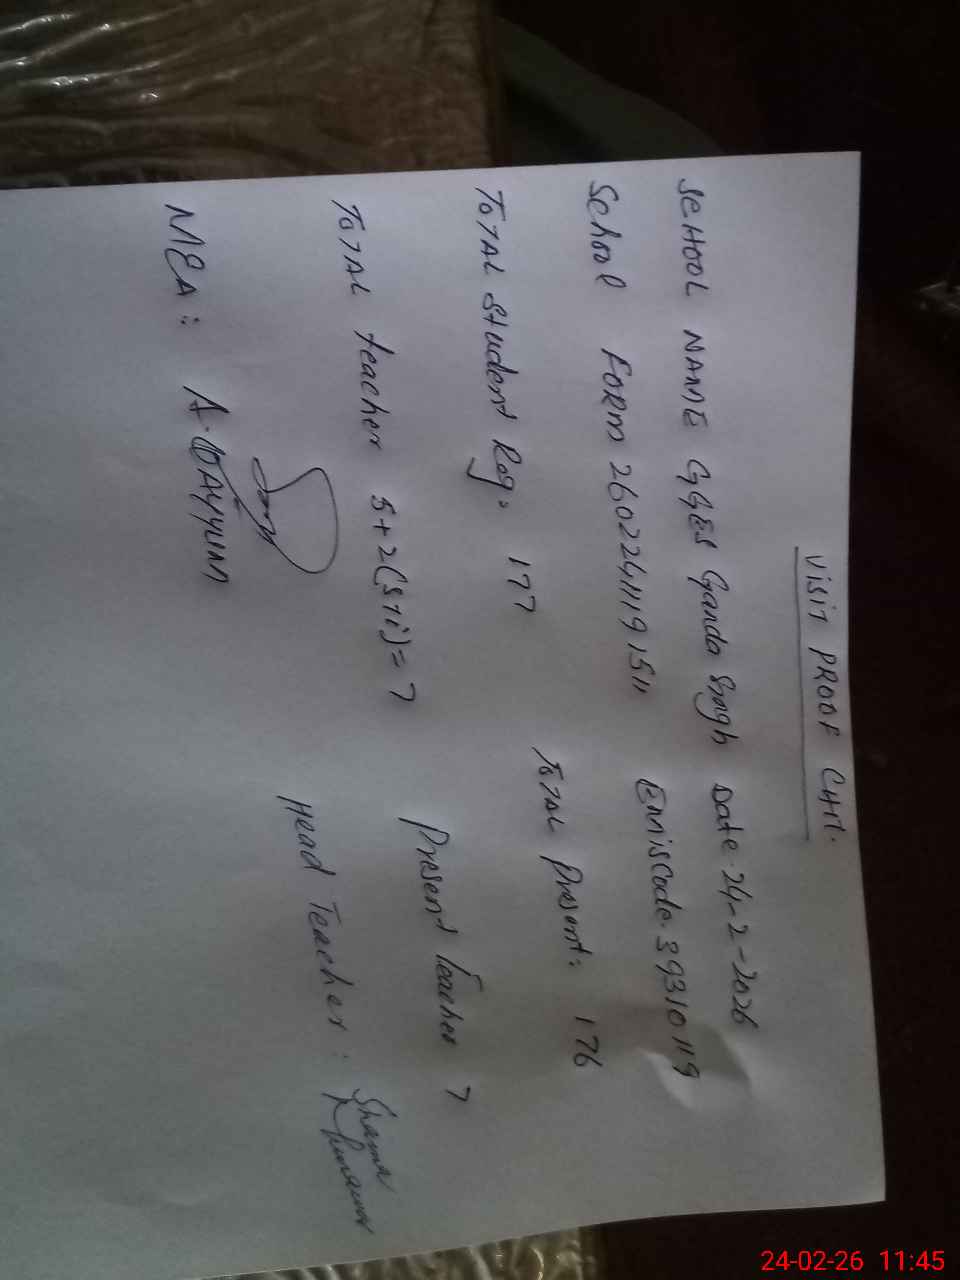 VISIT PROOF CHIT.
SCHOOL NAME GGES Ganda Singh Date. 24-2-2026
School FORM 2602241119 1511 EmisCode. 39310119
TOTAL Student Reg. 177 TOTAL Present: 176
TOTAL teacher 5+2(STI)=7 Present Teacher 7
MEA: A.QAYYUM Head Teacher: Shama
24-02-26 11:45